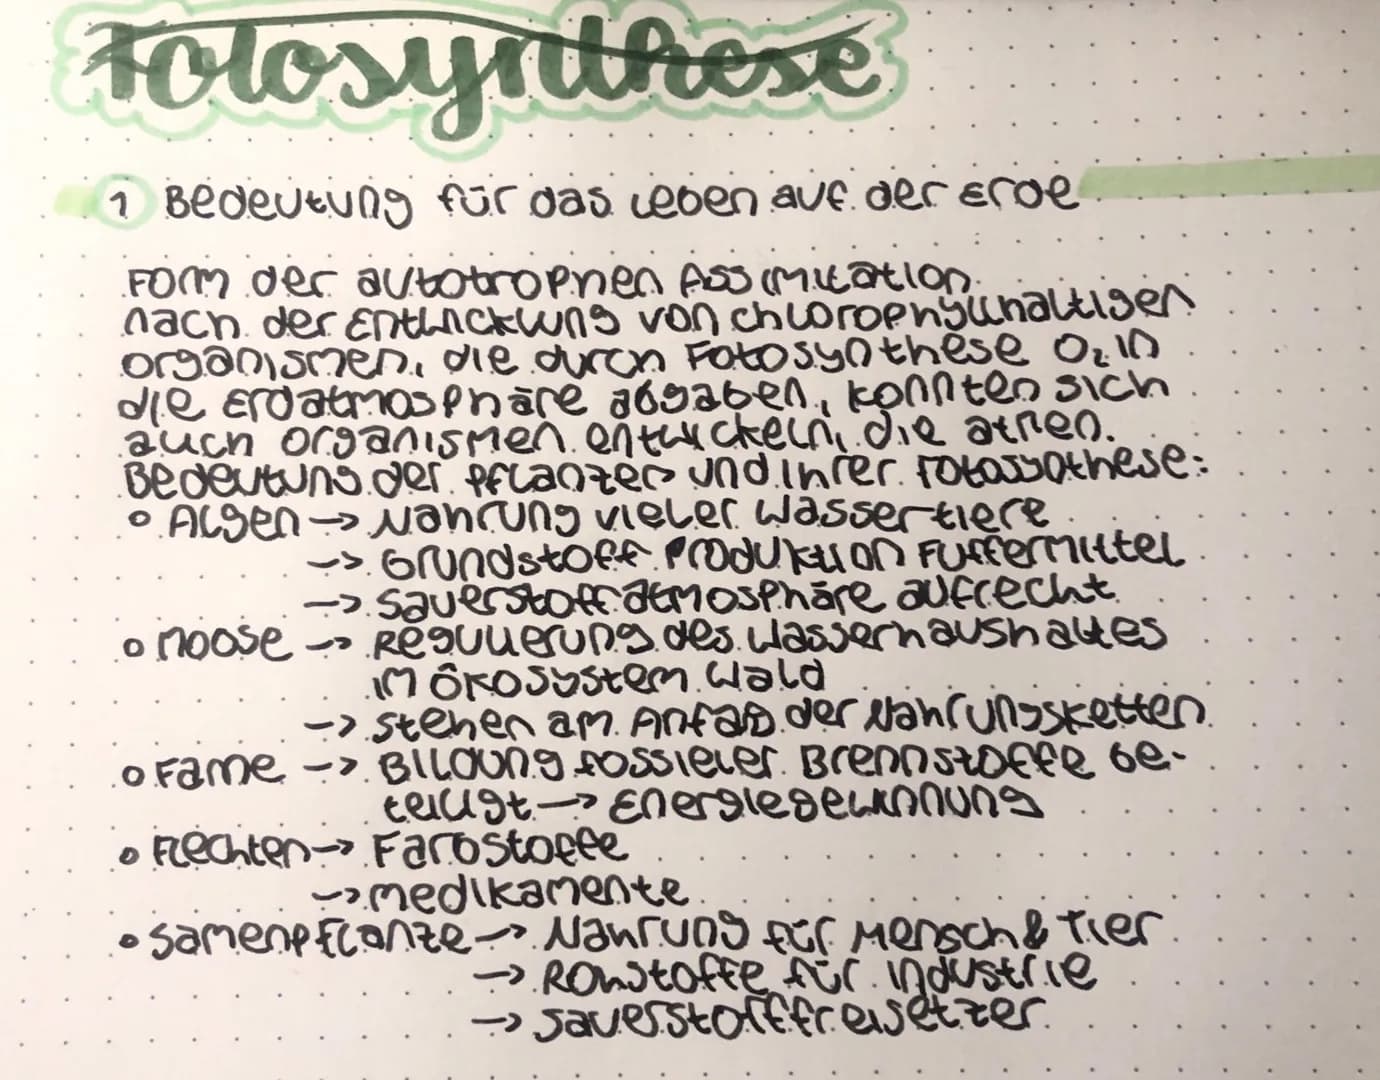 Fotosynthese
1 Bedeutung für das Leben auf der Erde
Form der autotrophen Assimilation.
nach der Entwicklung von chlorophyllhaltigen
Organismen, die durch Fotosynthese O₂ in
die Erdatmosphäre abgaben, konnten sich
auch Organismen entwickeln, die atmen.
Bedeutung der Pflanzen und ihrer Fotosynthese:
○ Algen → Nahrung vieler Wassertiere
→ Grundstoff Produktion Futtermittel
→ Sauerstoffatmosphäre aufrecht
○ Moose → Regulierung des Wasserhaushaltes
im Ökosystem Wald
→ stehen am Anfang der Nahrungsketten
○ Farne → Bildung fossieler Brennstoffe be-
teiligt → Energiegewinnung
○ Flechten → Farbstoffe
→ medikamente
○ Samenpflanze → Nahrung für Mensch & Tier
→ Rohstoffe für Industrie
→ Sauerstofffreisetzer